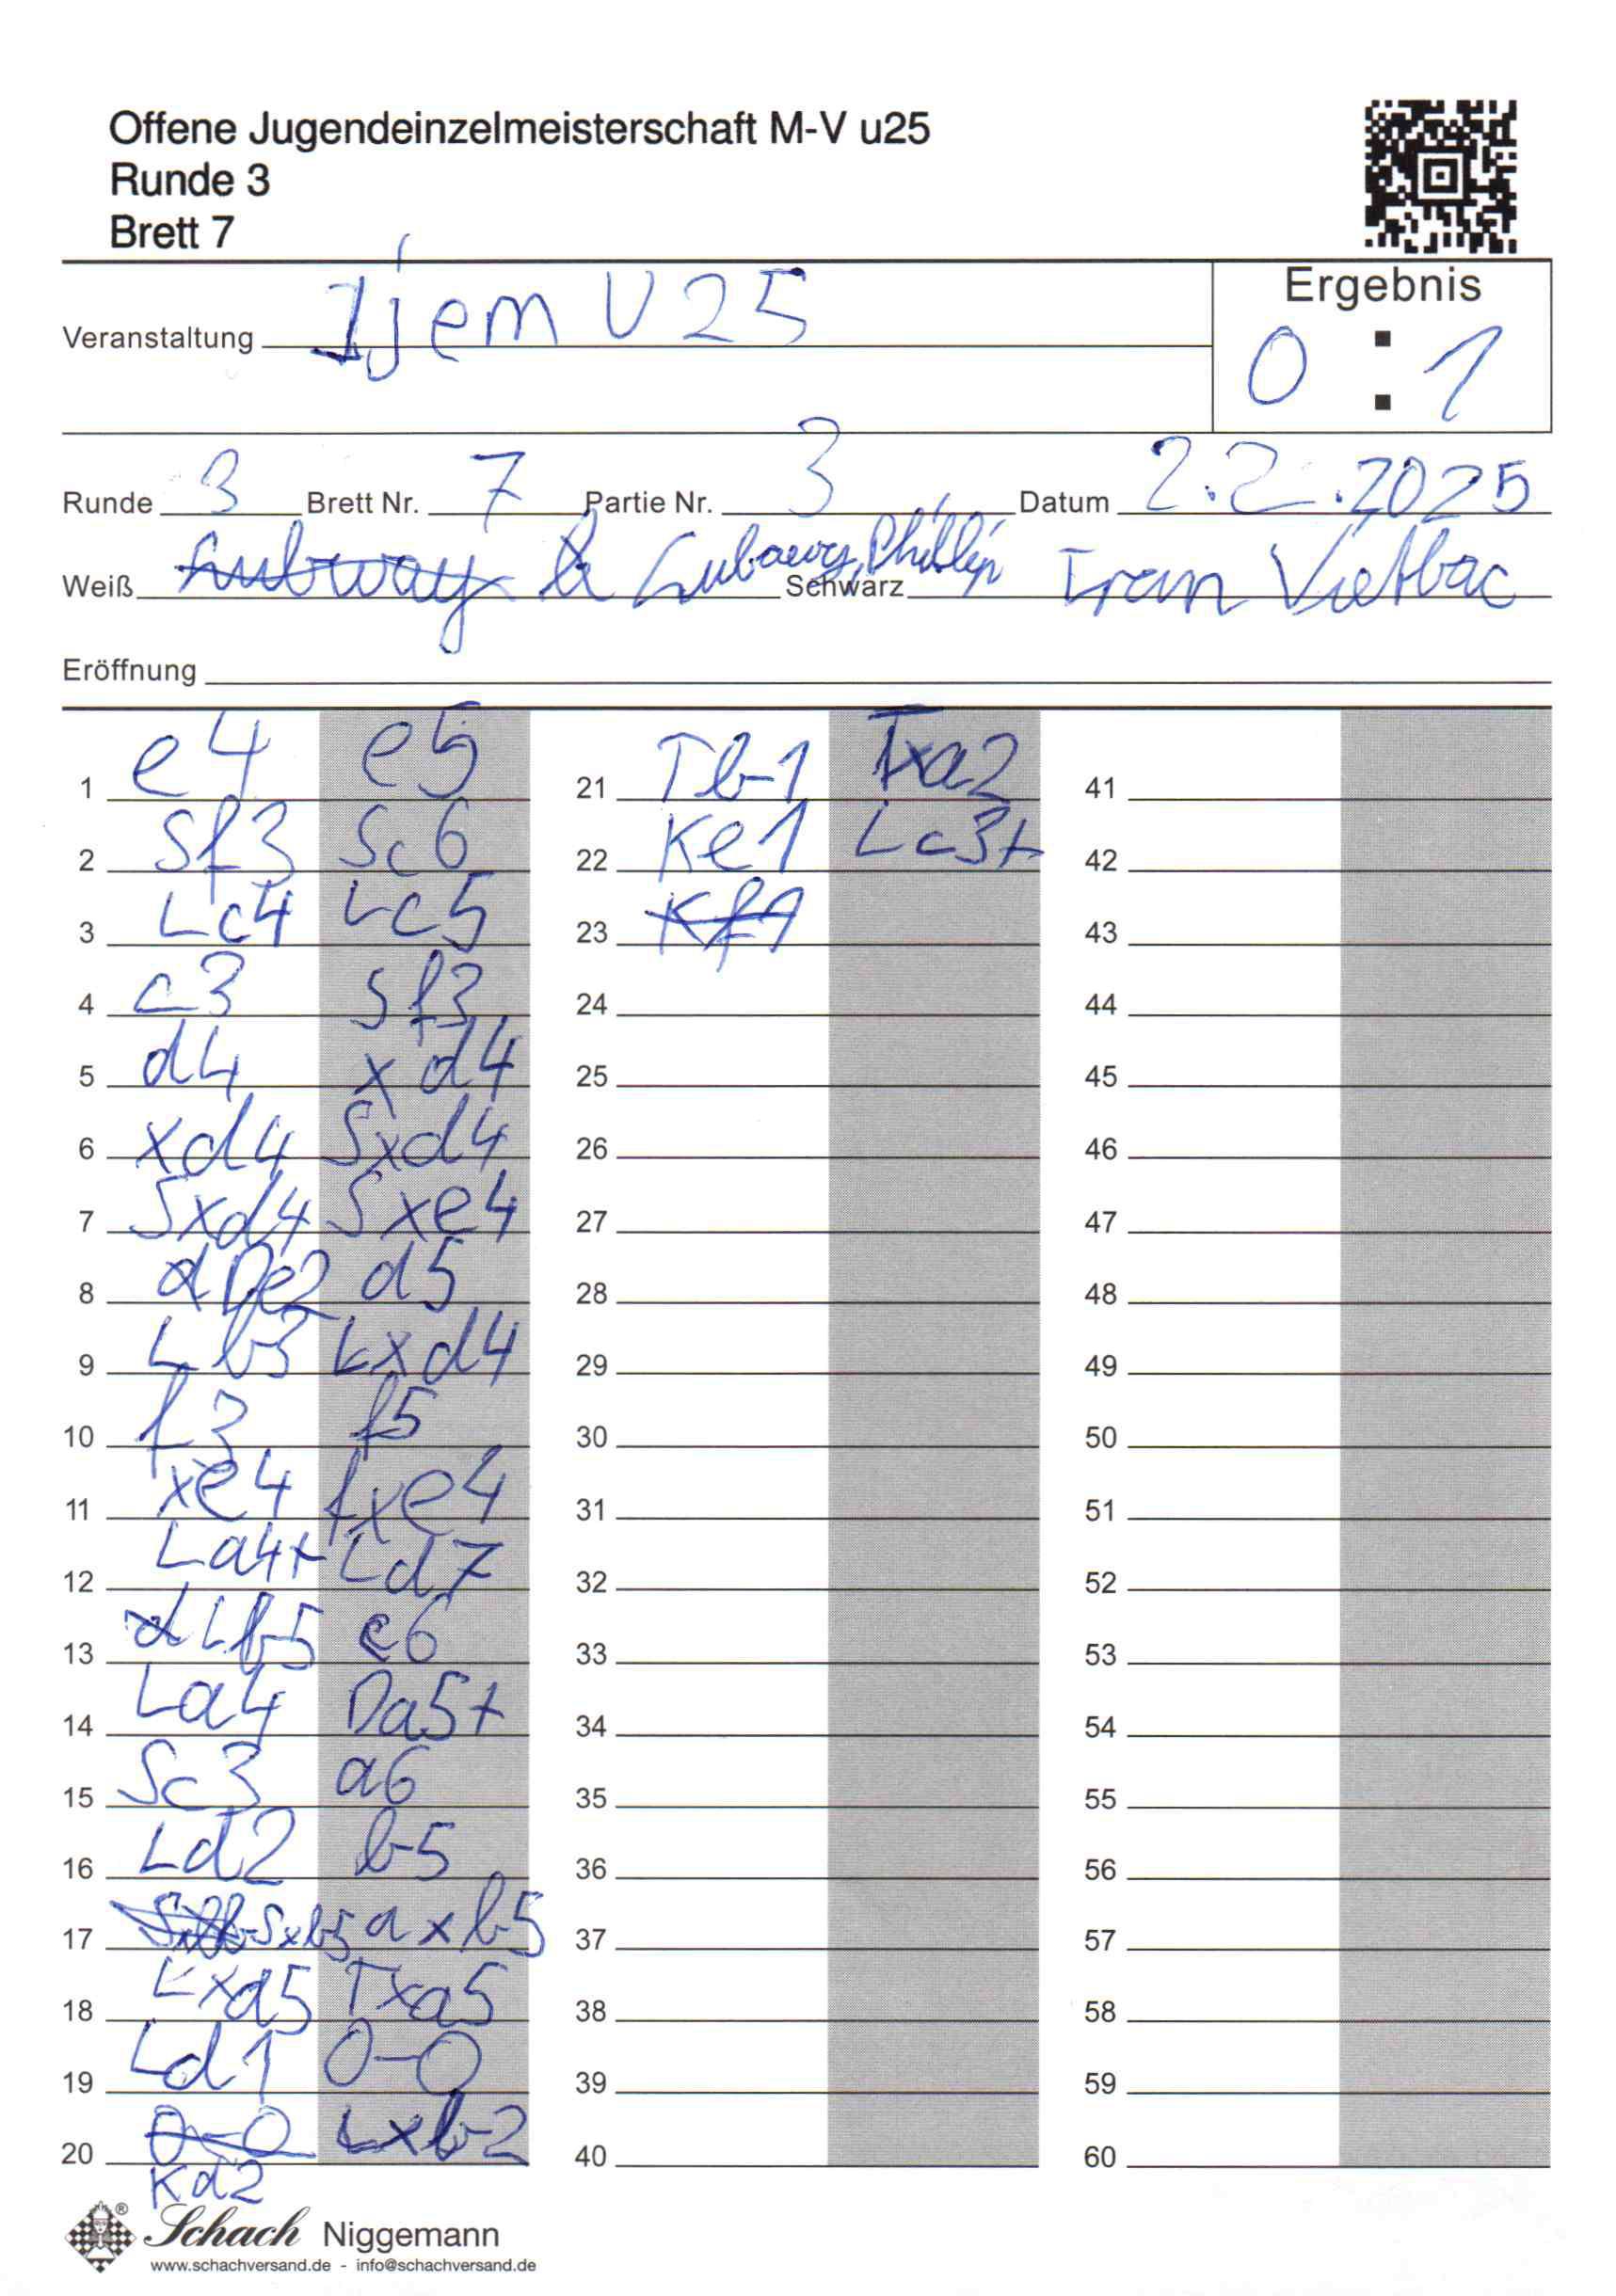 Offene Jugendeinzelmeisterschaft M-V u25
Runde 3
Brett 7
Veranstaltung Ijem U25
Ergebnis
0 : 1
Runde 3 Brett Nr. 7 Partie Nr. 3 Datum 2.2.2025
Weiß Phillip Schwarz Tran Vietbac
Eröffnung
1 e4 e5
2 Sf3 Sc6
3 Lc4 Lc5
4 c3 Sf3
5 d4 xd4
6 xd4 Sxd4
7 Sxd4 Sxe4
8 De2 d5
9 Lb3 Lxd4
10 f3 f5
11 xe4 fxe4
12 La4+ Ld7
13 Lb5 c6
14 La4 Da5+
15 Sc3 a6
16 Ld2 b5
17 Sxb5 axb5
18 Lxa5 Txa5
19 Ld1 0-0
20 0-0 Lxb2
Kd2
21 Tb1 Txa2
22 Ke1 Lc3+
23 Kf1
24
25
26
27
28
29
30
31
32
33
34
35
36
37
38
39
40
41
42
43
44
45
46
47
48
49
50
51
52
53
54
55
56
57
58
59
60
Schach Niggemann
www.schachversand.de - info@schachversand.de